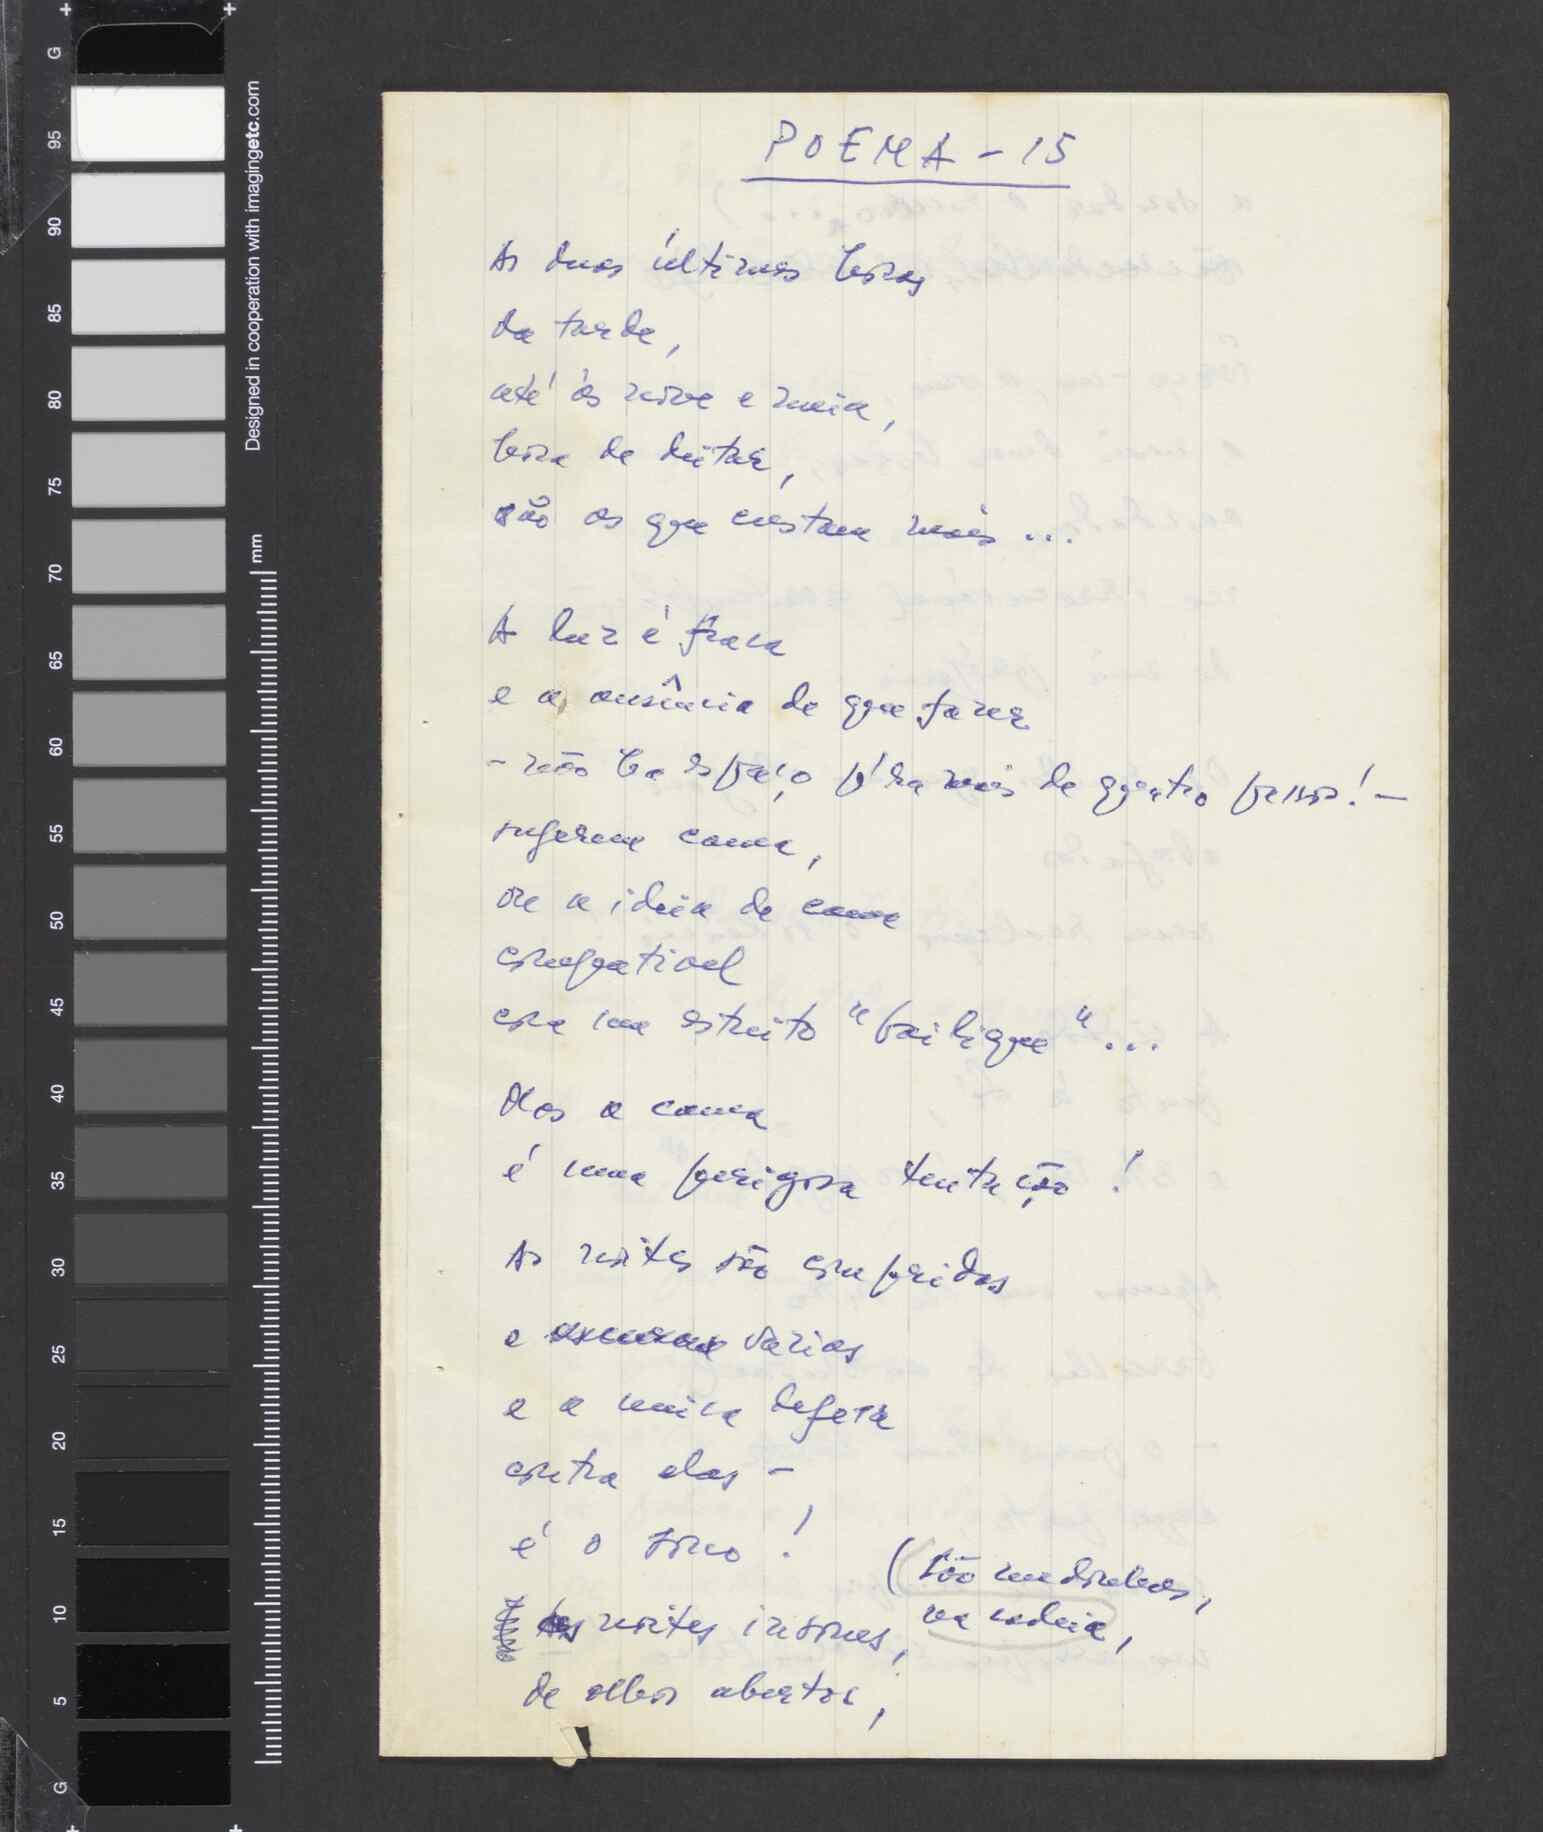 G
95
90
85
80
75
70
65
60
55
50
45
40
35
30
25
20
15
10
5
G
Designed in cooperation with imagingetc.com
mm
POEMA - 15
As duas últimas horas
da tarde,
até às nove e meia,
hora de deitar,
são as que custam mais ...
A luz é fraca
e a ausência de que fazer
- não há espaço p'ra mais de quatro passos! -
sugerem cama,
ou a ideia de cama
compatível
com um estreito "bailique" ...
Mas a cama
é uma perigosa tentação !
As noites são compridas
e vazias
e a única defesa
contra elas -
é o sono !
(São medonhas,
na cadeia,
as noites insones,
de olhos abertos,